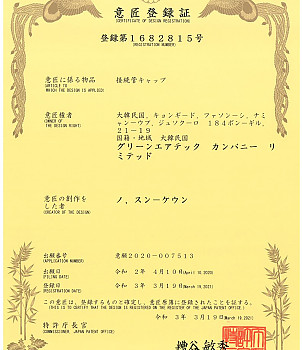 意匠登録証
(CERTIFICATE OF DESIGN REGISTRATION)
登録第1682815号
(REGISTRATION NUMBER)
意匠に係る物品 接続管キャップ
(ARTICLE TO
WHICH THE DESIGN IS APPLIED)
意匠権者 大韓民国、キョンギード、ファソンーシ、ナミ
(OWNER OF ャンーウプ、ジュソクーロ 184ボンーギル、
THE DESIGN RIGHT) 21-19
国籍・地域 大韓民国
グリーンエアテック カンパニー リ
ミテッド
意匠の創作を ノ、スンーケウン
した者
(CREATOR OF THE DESIGN)
出願番号 意願2020-007513
(APPLICATION NUMBER)
出願日 令和 2年 4月10日(April 10,2020)
(FILING DATE)
登録日 令和 3年 3月19日(March 19,2021)
(REGISTRATION DATE)
この意匠は、登録するものと確定し、意匠原簿に登録されたことを証する。
(THIS IS TO CERTIFY THAT THE DESIGN IS REGISTERED ON THE REGISTER OF THE JAPAN PATENT OFFICE.)
令和 3年 3月19日(March 19,2021)
特許庁長官
(COMMISSIONER, JAPAN PATENT OFFICE)